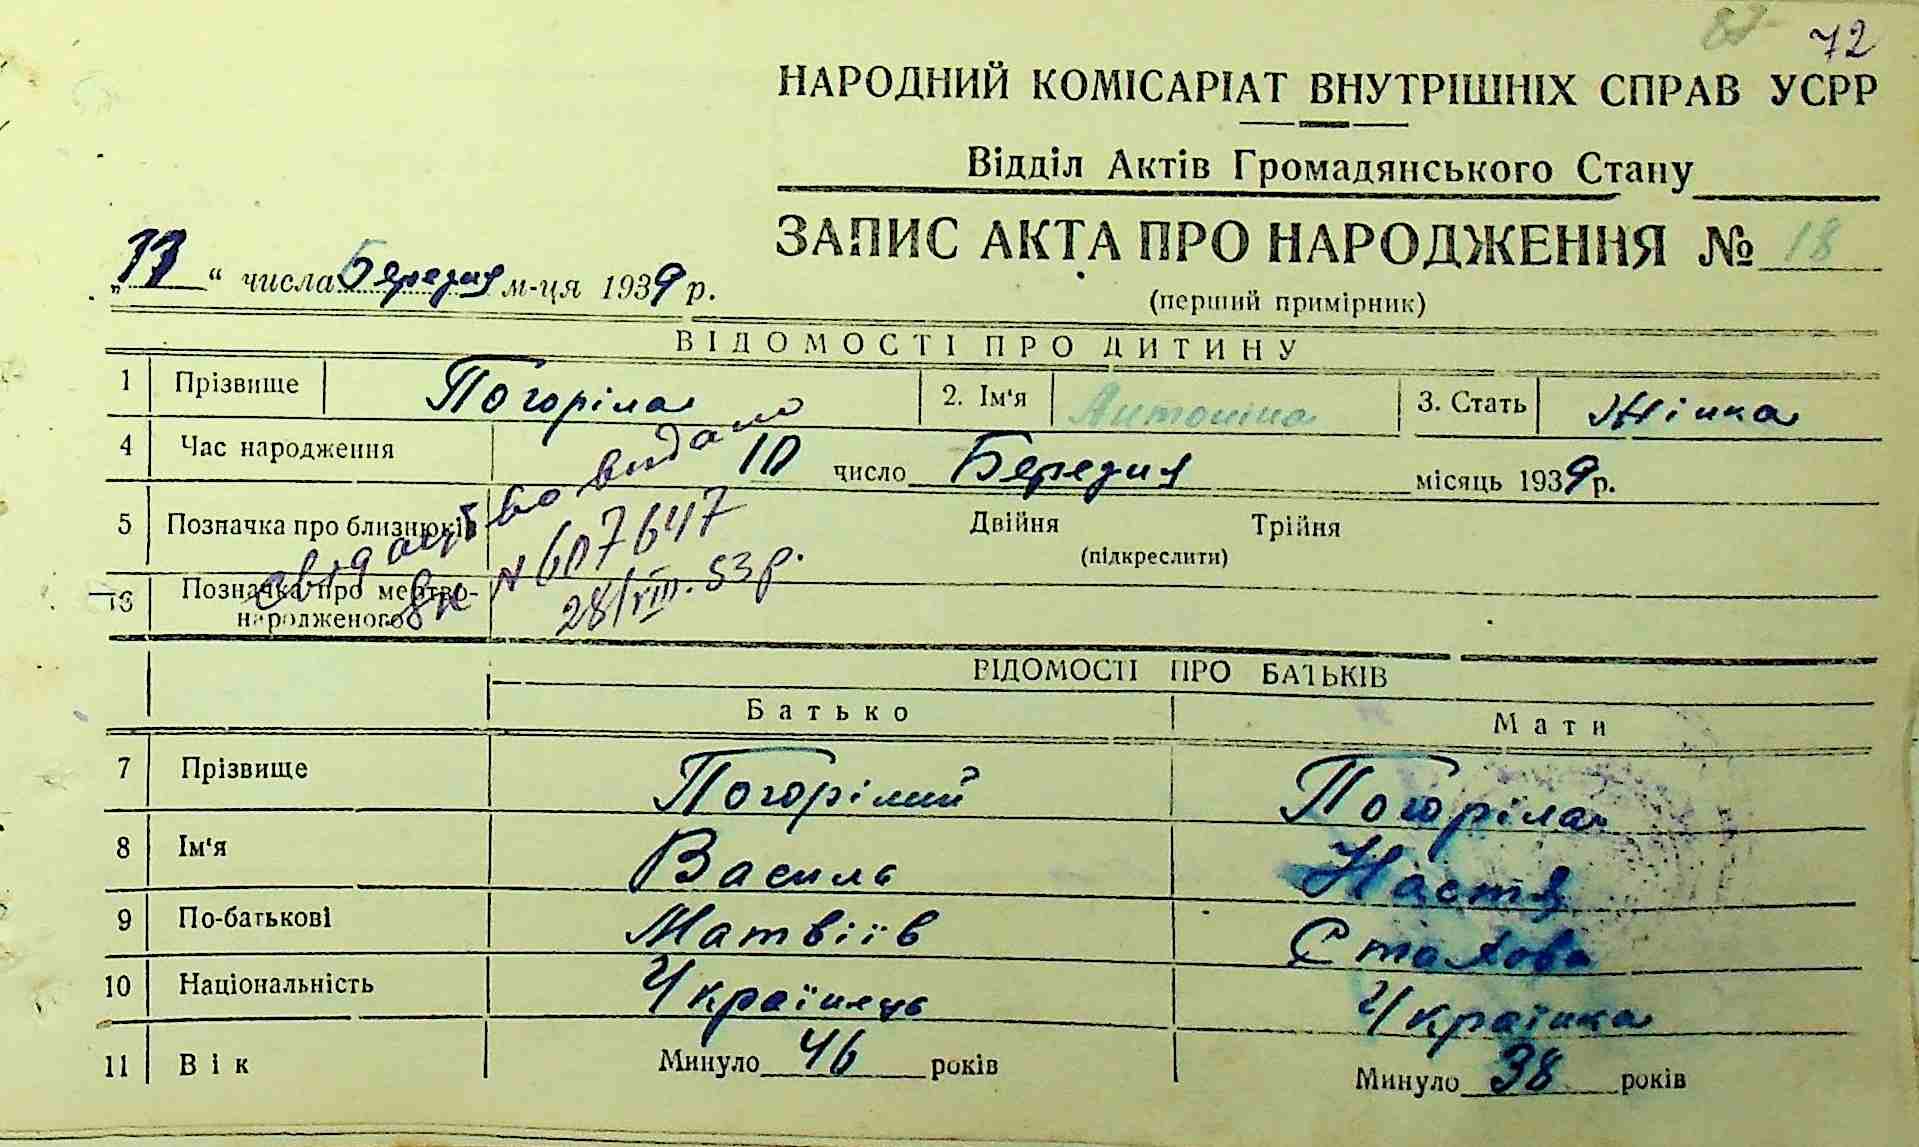 72
НАРОДНИЙ КОМІСАРІАТ ВНУТРІШНІХ СПРАВ УСРР
Відділ Актів Громадянського Стану
ЗАПИС АКТА ПРО НАРОДЖЕННЯ № 18
„ “ числа Березня м-ця 1939 р.
(перший примірник)
ВІДОМОСТІ ПРО ДИТИНУ
1 Прізвище Погоріла 2. Ім'я Антоніна 3. Стать Жінка
4 Час народження 10 число Березня місяць 1939 р.
5 Позначка про близнюків Двійня Трійня
(підкреслити)
6 Позначка про мертво-
народженого
видано
№ 607647
28/VIII. 53 р.
ВІДОМОСТІ ПРО БАТЬКІВ
Батько Мати
7 Прізвище Погорілий Погоріла
8 Ім'я Василь Настя
9 По-батькові Матвіїв Стахова
10 Національність Українець Українка
11 Вік Минуло 46 років Минуло 38 років